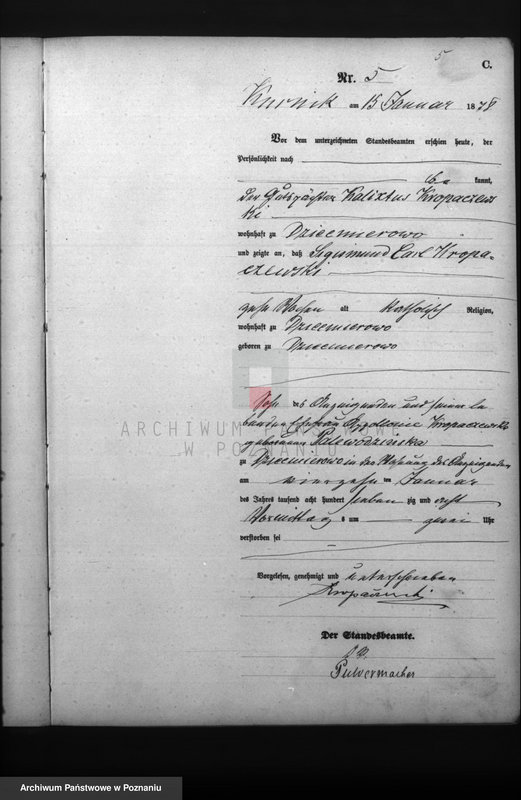 5
C.
Nr. 5
Kurnik am 15 Januar 1878
Vor dem unterzeichneten Standesbeamten erschien heute, der
Persönlichkeit nach
be kannt,
der Gutspächter Kalixtus Kropaczews
ki
wohnhaft zu Dziecmierowo
und zeigte an, daß Sigismund Carl Kropa-
czewski
sechs Wochen alt katholisch Religion,
wohnhaft zu Dziecmierowo
geboren zu Dziecmierowo
Sohn des Anzeigenden und seiner le
benden Ehefrau Appollonie Kropaczewski
geborenen
ARCHIWUM PAŃSTWOWE
W POZNANIU
zu Dziecmierowo in der Wohnung des Anzeigenden
am vierzehn ten Januar
des Jahres tausend acht hundert sieben zig und acht
Vormittag s um zwei Uhr
verstorben sei
Vorgelesen, genehmigt und unterschrieben
Der Standesbeamte.
Pulvermacher
Archiwum Państwowe w Poznaniu